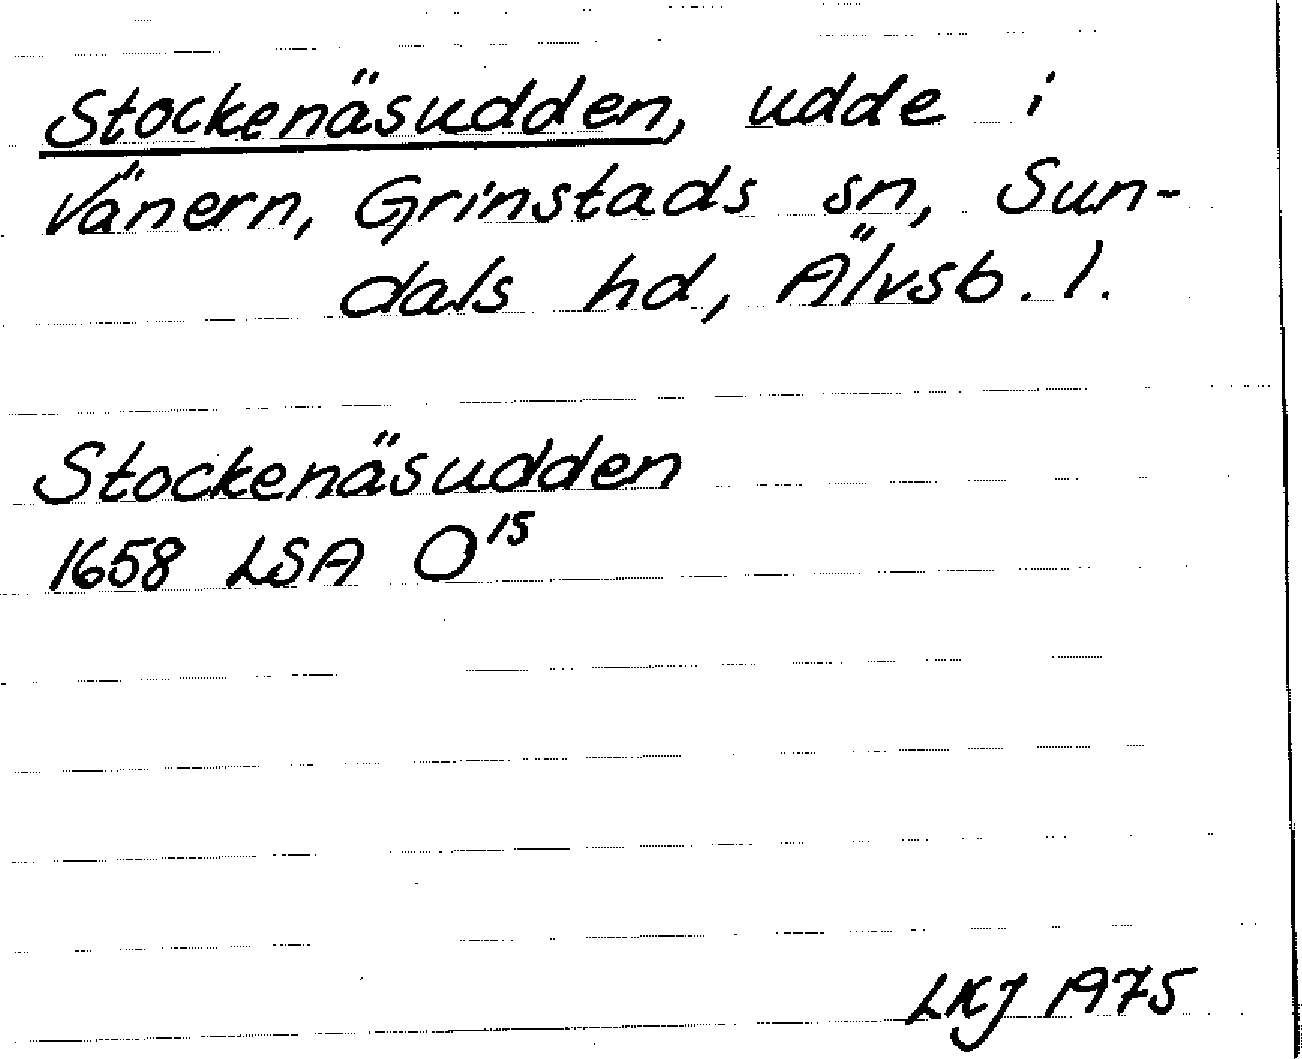 Stockenäsudden, udde i
Vänern, Grinstads sn, Sun-
dals hd, Älvsb. l.
Stockenäsudden
1658 LSA O¹⁵
LKJ 1975